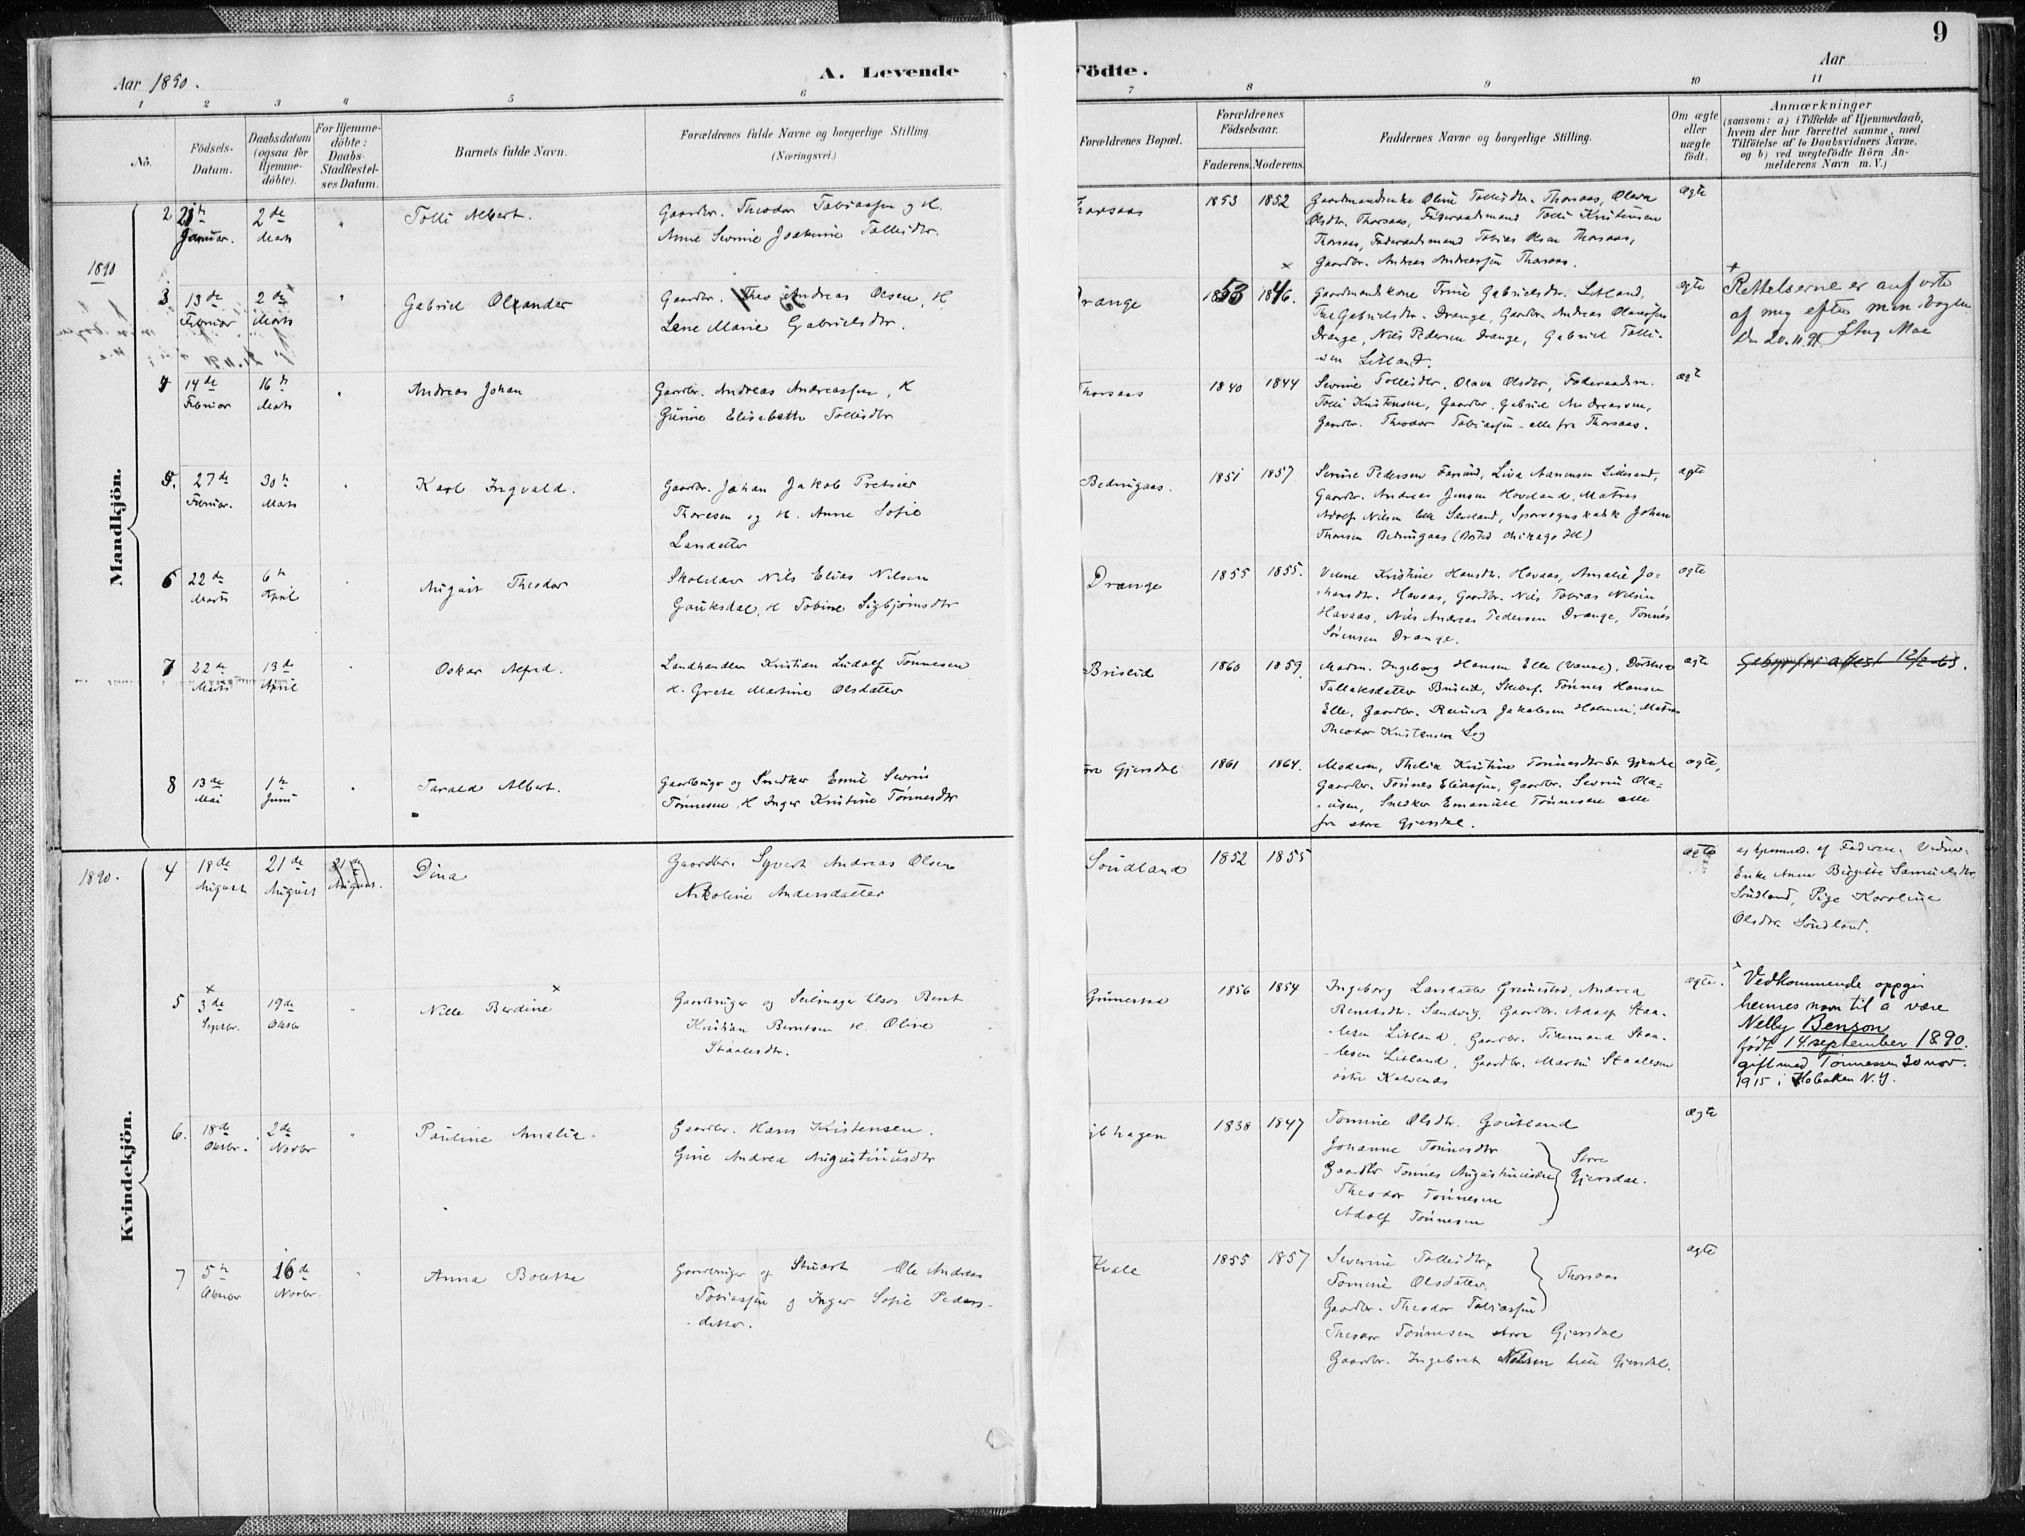 9
Aar 1890.
A. Levende
Födte.
Aar
1 2 3 4 5 6 7 8 9 10 11
No.
Födsels-Datum.
Daabsdatum (ogsaa for Hjemme-döbte).
For Hjemme-döbte: Daabs-Stadfæstel-ses Datum.
Barnets fulde Navn.
Forældrenes fulde Navne og borgerlige Stilling.
(Næringsvei.)
Forældrenes Bopæl.
Forældrenes Födselsaar.
Faderens. Moderens.
Faddernes Navne og borgerlige Stilling.
Om ægte eller uægte født.
Anmærkninger
(saasom: a) i Tilfælde af Hjemmedaab,
hvem der har forrettet samme, med
Tilföielse af to Daabsvidners Navne,
og b) ved uægtefödte Börn An-
melderens Navn m. V.)
Mandkjön.
1890
2 21 Januar. 2de Marts " Tolli Albert.
Gaardbr. Theodor Tobiassen og H.
Anne Serine Joakime Tollisdtr.
Thorsaas 1853 1852
Gaardmandsenke Oline Tollisdtr. Thorsaas, Olava
Olsdtr. Thorsaas, Föderaadsmand Tolli Kristensen
Thorsaas, Föderaadsmand Tobias Olsen Thorsaas,
Gaardbr. Andreas Andreassen Thorsaas.
ægte
3 13de Februar 2de Marts " Gabriel Olander
Gaardbr. Andreas Olsen, H
Lene Marie Gabrielsdtr.
Drange 1853 1846.
Gaardmandskone Trine Gabrielsdtr. Litland,
Gabrielsdtr. Drange, Gaardbr. Andreas
Drange, Nils Pedersen Drange, Gabriel Tolli-
sen Litland.
ægte
Rettelserne er anført
af meg efter min. bogen
Den 20.11.9 Aug Moe
4 14de Februar 16 Marts " Andreas Johan
Gaardbr. Andreas Andreassen, H
Gunne Elisabeth Tollisdtr
Thorsaas 1840 1844
Serine Tollisdtr, Olava Olsdtr, Föderaadsm.
Tolli Kristensen, Gaardbr. Gabriel Andreassen,
Gaardbr. Theodor Tobiassen - alle fra Thorsaas.
ægt
5. 27de Februar. 30 Marts " Karl Ingvald.
Gaardbr. Johan Jakob
Thoresen og H. Anne Sofie
Larsdatter
Bedringaas. 1851 1857
Serine Pedersen Farsund, Lisa Litland,
Gaardbr. Andreas Jensen Hoveland, Matros
Adolf Nilsen lille Sævland, Sporvognskusk Johan
Thoresen Bedringaas (Bosted Chikago Ill)
ægte
6 22de Marts 6 April August Theodor
Skolelær Nils Elias Nilsen
Gauksdal, H Tobine Sigbjörnsdtr
Drange 1855 1855.
Kristine Hansdtr. Havaas, Amalie Jo-
hansdtr. Havaas, Gaardbr. Nils Tobias Nilsen
Havaas, Nils Andreas Pedersen Drange, Tönnes
Sörensen Drange.
ægte
7 22de Marts 13de April Oskar Alfred.
Landhandler Kristian Ludolf Tönnesen
H. Grete Martine Olsdatter
Briseid 1860 1859.
Madm. Ingeborg Hansen Elle (Vanse), Dorthea
Tallaksdatter Briseid, Skibsf. Tönnes Hansen
Elle, Gaardbr. Reinert Jakobsen Holmen, Matros
Theodor Kristensen Log
ægte
Gebyrfri attest 12/2-63.
8 13de Mai 1 Juni Tarald Albert.
Gaardbruger og Snedker Emil Severin
Tönnesen H Inger Kristine Tönnesdtr
Gjersdal 1861 1864.
Moderen, Thelia Kristine Tönnesdtr St Gjersdal
Gaardbr. Tönnes Eliassen, Gaardbr. Severin Ola-
usen, Snedker Emanuel Tönnesen alle
fra store Gjersdal.
ægte,
Kvindekjön.
1890.
4 18de August 21de August 21de August. Dina
Gaardbr. Syvert Andreas Olsen
Nikoline Andersdatter
Sundland 1852 1855
ægte
hjemmed. af Faderen. Vidne.
Enke Anne Birgitte Samuelsdtr
Sundland, Pige Karoline
Olsdtr Sundland.
5 3de Septbr. 19de Oktbr " Nille Berdine
Gaardbruger og Seilmager Elias Bernt
Kristian Berntsen H. Oline
Staalesdtr.
Grimestad 1856 1854
Ingeborg Larsdatter Grimestad, Andrea
Berntsdtr. Sandvig, Gaardbr. Adolf Staa-
lesen Litland, Gaardbr. Tidemand Staa-
lesen Litland, Gaardbr. Martin Staalesen
östre Kalvenes
ægte.
Vedkommende oppgir
hennes navn til å være
Nelly Benson
født 14. september 1890.
gift med Tönnessen 20 nov.
1915 i Hoboken N.Y.
6. 18de Oktbr. 2de Novbr " Pauline Amalie.
Gaardbr. Hans Kristensen.
Gine Andrea Augustinusdtr
hagen 1838 1847
Tomine Olsdtr. Gautland
Johanne Tönnesdtr
Gaardbr Tönnes Augustinusen
Theodor Tönnesen
Adolf Tönnesen
Store Gjersdal.
ægte
7 5 Oktober 16de Novbr. " Anna Bolette
Gaardbruger og Stuert Ole Andreas
Tobiassen og Inger Sofie Peders-
datter.
Kvale 1855 1857
Severine Tollisdtr,
Tomine Olsdatter,
Gaardbr. Theodor Tobiassen
Thorsaas
Theodor Tönnesen store Gjersdal
Gaardbr. Ingebret Nilsen lille Gjersdal.
ægte